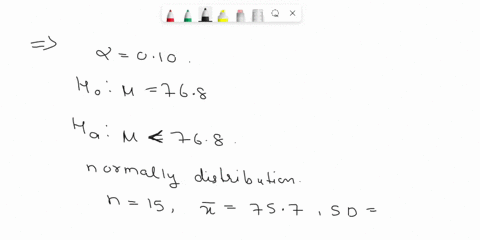 ⇒ α = 0.10.
H₀: μ = 76.8
Hₐ: μ < 76.8.
normally distribution.
n = 15, x̄ = 75.7, SD =